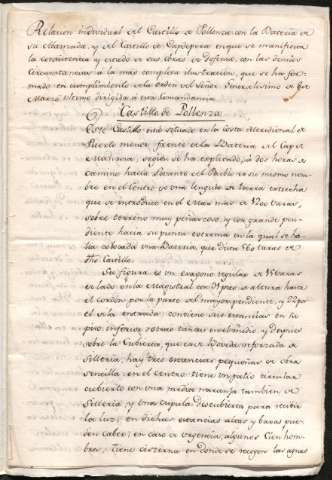 Relacion individual del Castillo de Pollenza con la Bateria de
su Marinada, y el Castillo de Capdepera en que se manifiesta
la consistencia y estado de sus obras de defensa, con las demas
circunstancias a la mas completa ilustracion, que se ha for
mado en cumplimiento de la orden del Señor de
Marzo ultimo dirigida á esta Comandancia.
Castillo de Pollenza
Este Castillo está situado en la Costa Meridional del
Puerto menor, frente de la Bateria del Cape
Manresa, según se ha explicado, á dos horas de
camino hacia Levante del Pueblo de su mismo nom
bre en el centro de una lengüeta de tierra estrecha
que se introduce en el Mar mas de 1500 Varas,
sobre terreno muy peñascoso, y con grande pen
diente hacia su punta extrema en la qual se ha
lla colocada una Bateria, que dista 560 varas de
dho Castillo.
Su figura es un exagono regular de varas
de lado en la Magistral con pies de altura hasta
el cordon por la parte del mayor pendiente, y
el de la entrada: contiene seis estancias en su
piso inferior,
sobre la Cubierta, que es a Boveda reforzada de
Silleria, hay tres estancias pequeñas de obra
sencilla en el centro tiene un patio circular
cubierto con una media naranja tambien de
Silleria, y una cupula descubierta para recibir
las luces; en dichas estancias altas y bajas pue
den caber, en caso de urgencia, algunos Cien hom
bres, tiene cisterna en donde se recogen las aguas